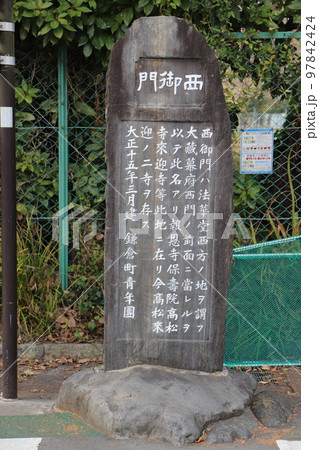 西御門
西御門ハ法華堂西方ノ地ヲ謂フ
大蔵幕府西門ノ前面ニ當レルヲ
以テ此名アリ報恩寺保壽院高松
寺來迎寺等此地ニ在リ今高松來
迎ノ二寺ヲ存ス
大正十五年三月建 鎌倉町青年團
PIXTA
pixta.jp - 97842424